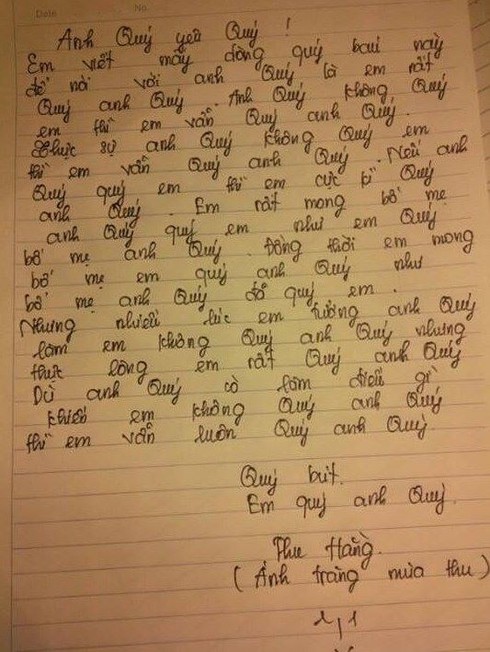 Date No.
Anh Quý yêu Quý !
Em viết mấy dòng quý baui này
để nói với anh Quý là em rất
Quý anh Quý. Anh Quý không Quý
em thì em vẫn Quý anh Quý.
Thực sự anh Quý không Quý em
thì em vẫn Quý anh Quý. Nếu anh
Quý quý em thì em cực kì Quý
anh Quý. Em rất mong bố mẹ
anh Quý quý em như em Quý
bố mẹ anh Quý. Đồng thời em mong
bố mẹ em quý anh Quý như
bố mẹ anh Quý đã quý em.
Nhưng nhiều lúc em tưởng anh Quý
làm em không Quý anh Quý nhưng
thực lòng em rất Quý anh Quý
Dù anh Quý có làm điều gì
khiến em không Quý anh Quý
thì em vẫn luôn Quý anh Quý.
Quý bút.
Em quý anh Quý.
Thu Hằng.
(Ánh trăng mùa thu)